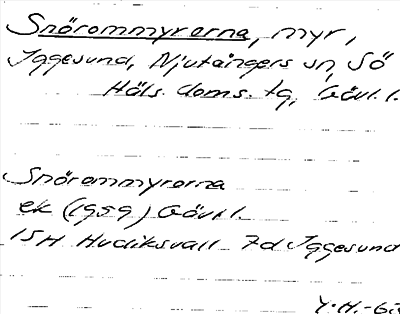 Snörommyrorna, myr,
Iggesund, Njutångers sn, SÖ
Häls. doms. tg, Gävl. l.
Snörommyrorna
ek (1959) Gävl l.
15H Hudiksvall 7d Iggesund
Y.H.-63